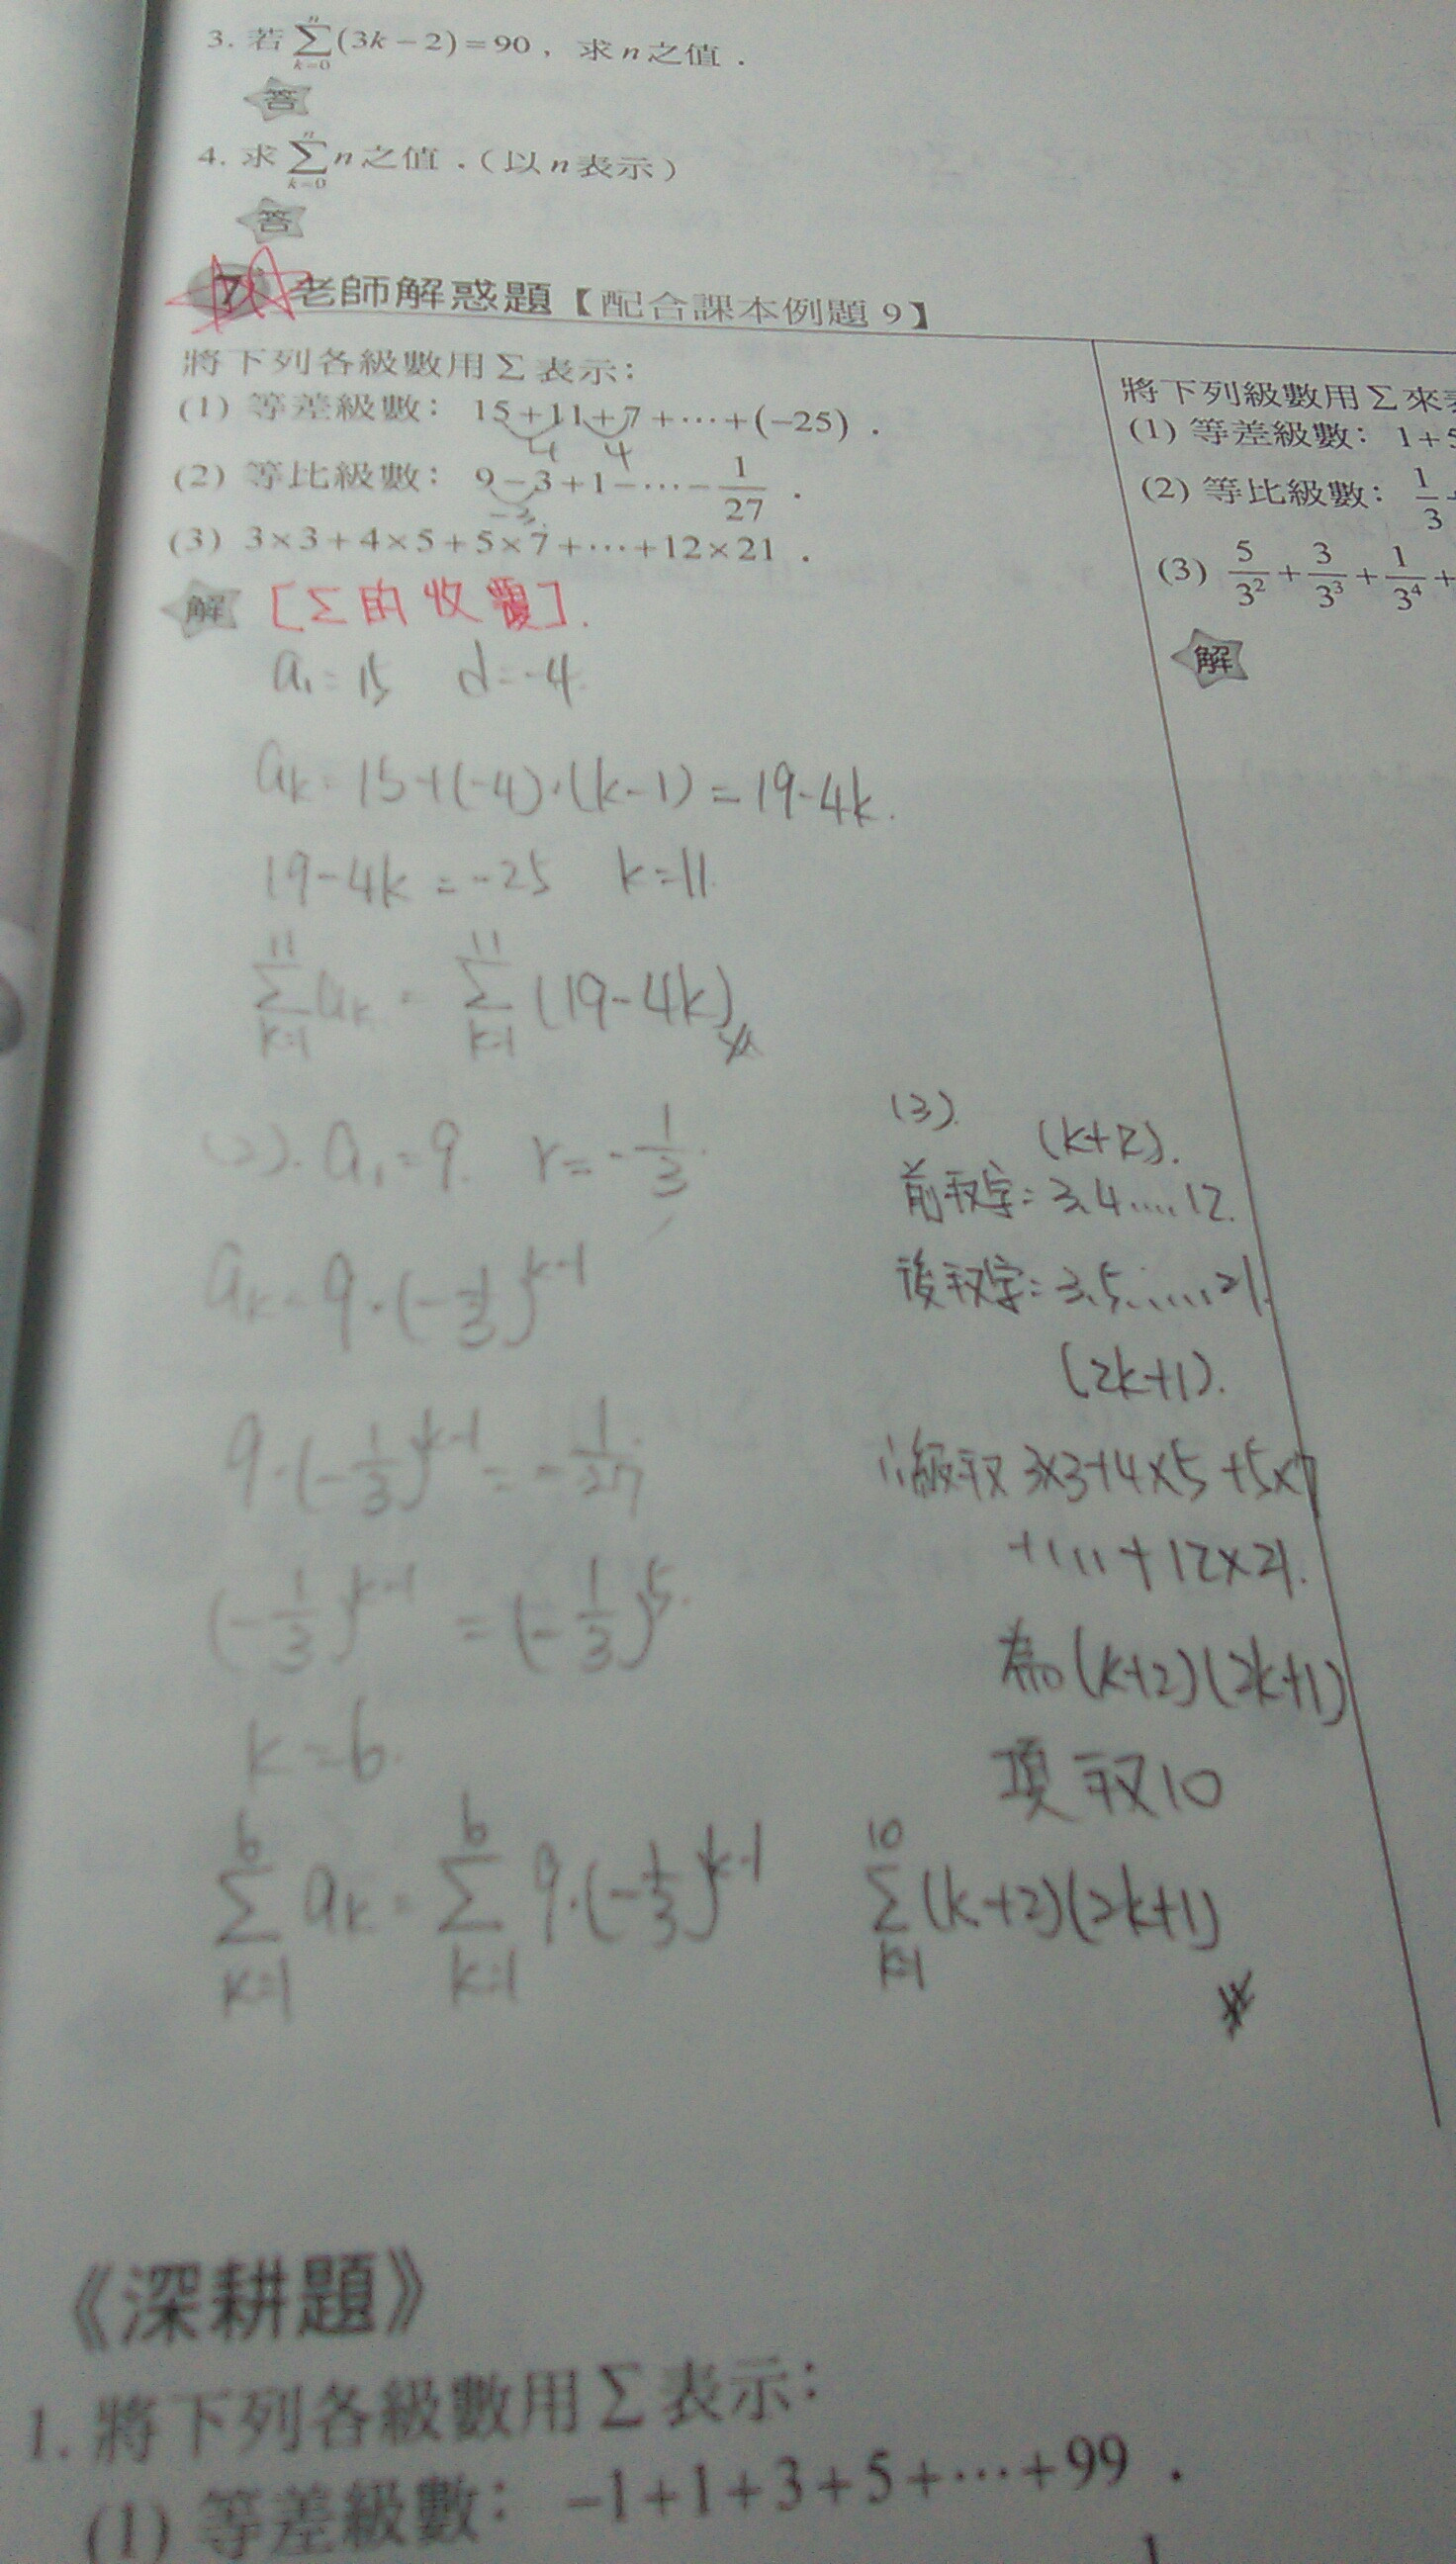 3. 若 $\sum_{k=0}^{n}(3k-2)=90$，求 n 之值．
答
4. 求 $\sum_{k=0}^{n}n$ 之值．(以 n 表示)
答
7 老師解惑題【配合課本例題 9】
將下列各級數用 Σ 表示：
(1) 等差級數： 15+11+7+⋯+(−25)．
4 4
(2) 等比級數： $9-3+1-\cdots-\frac{1}{27}$．
(3) 3×3+4×5+5×7+⋯+12×21．
解 [Σ的收
a₁=15 d=-4.
aₖ=15+(-4)·(k-1)=19-4k.
19-4k=-25 k=11.
$\sum_{k=1}^{11}a_k=\sum_{k=1}^{11}(19-4k)$
(2). a₁=9. $r=-\frac{1}{3}$.
$a_k=9\cdot(-\frac{1}{3})^{k-1}$
$9\cdot(-\frac{1}{3})^{k-1}=-\frac{1}{27}$
$(-\frac{1}{3})^{k-1}=(-\frac{1}{3})^5$.
k=6.
$\sum_{k=1}^{6}a_k=\sum_{k=1}^{6}9\cdot(-\frac{1}{3})^{k-1}$
(3).
(k+2).
前 : 3、4....12.
後 : 3、5......21.
(2k+1).
∴級 3×3+4×5+5×7
+....+12×21.
為(k+2)(2k+1)
項 10
$\sum_{k=1}^{10}(k+2)(2k+1)$
將下列級數用 Σ 來
(1) 等差級數： 1+
(2) 等比級數： $\frac{1}{3}$
(3) $\frac{5}{3^2}+\frac{3}{3^3}+\frac{1}{3^4}+$
解
《深耕題》
1. 將下列各級數用 Σ 表示：
(1) 等差級數： −1+1+3+5+⋯+99．
1